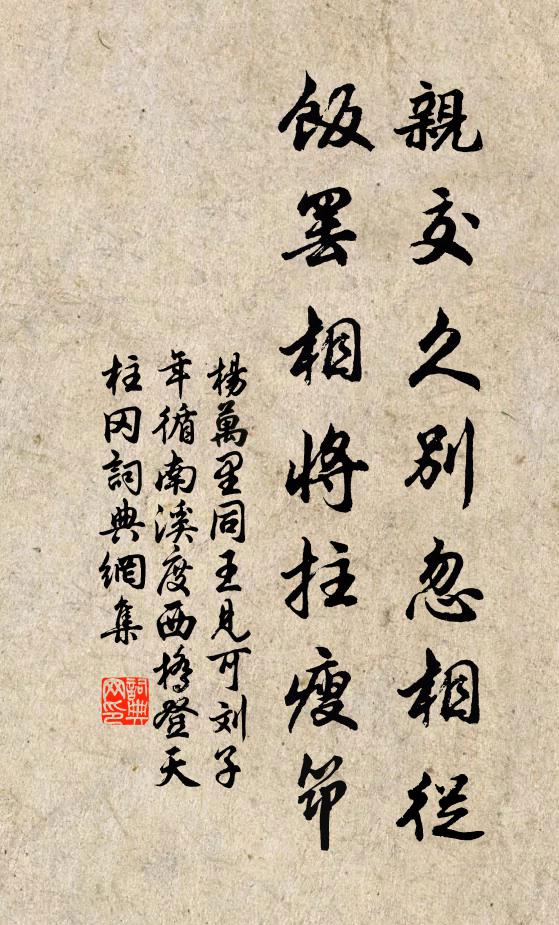 親交久別忽相從
飯罷相將拄瘦笻
楊萬里同王見可刘子
年循南溪度西橋登天
柱冈詞典網集
詞典网印